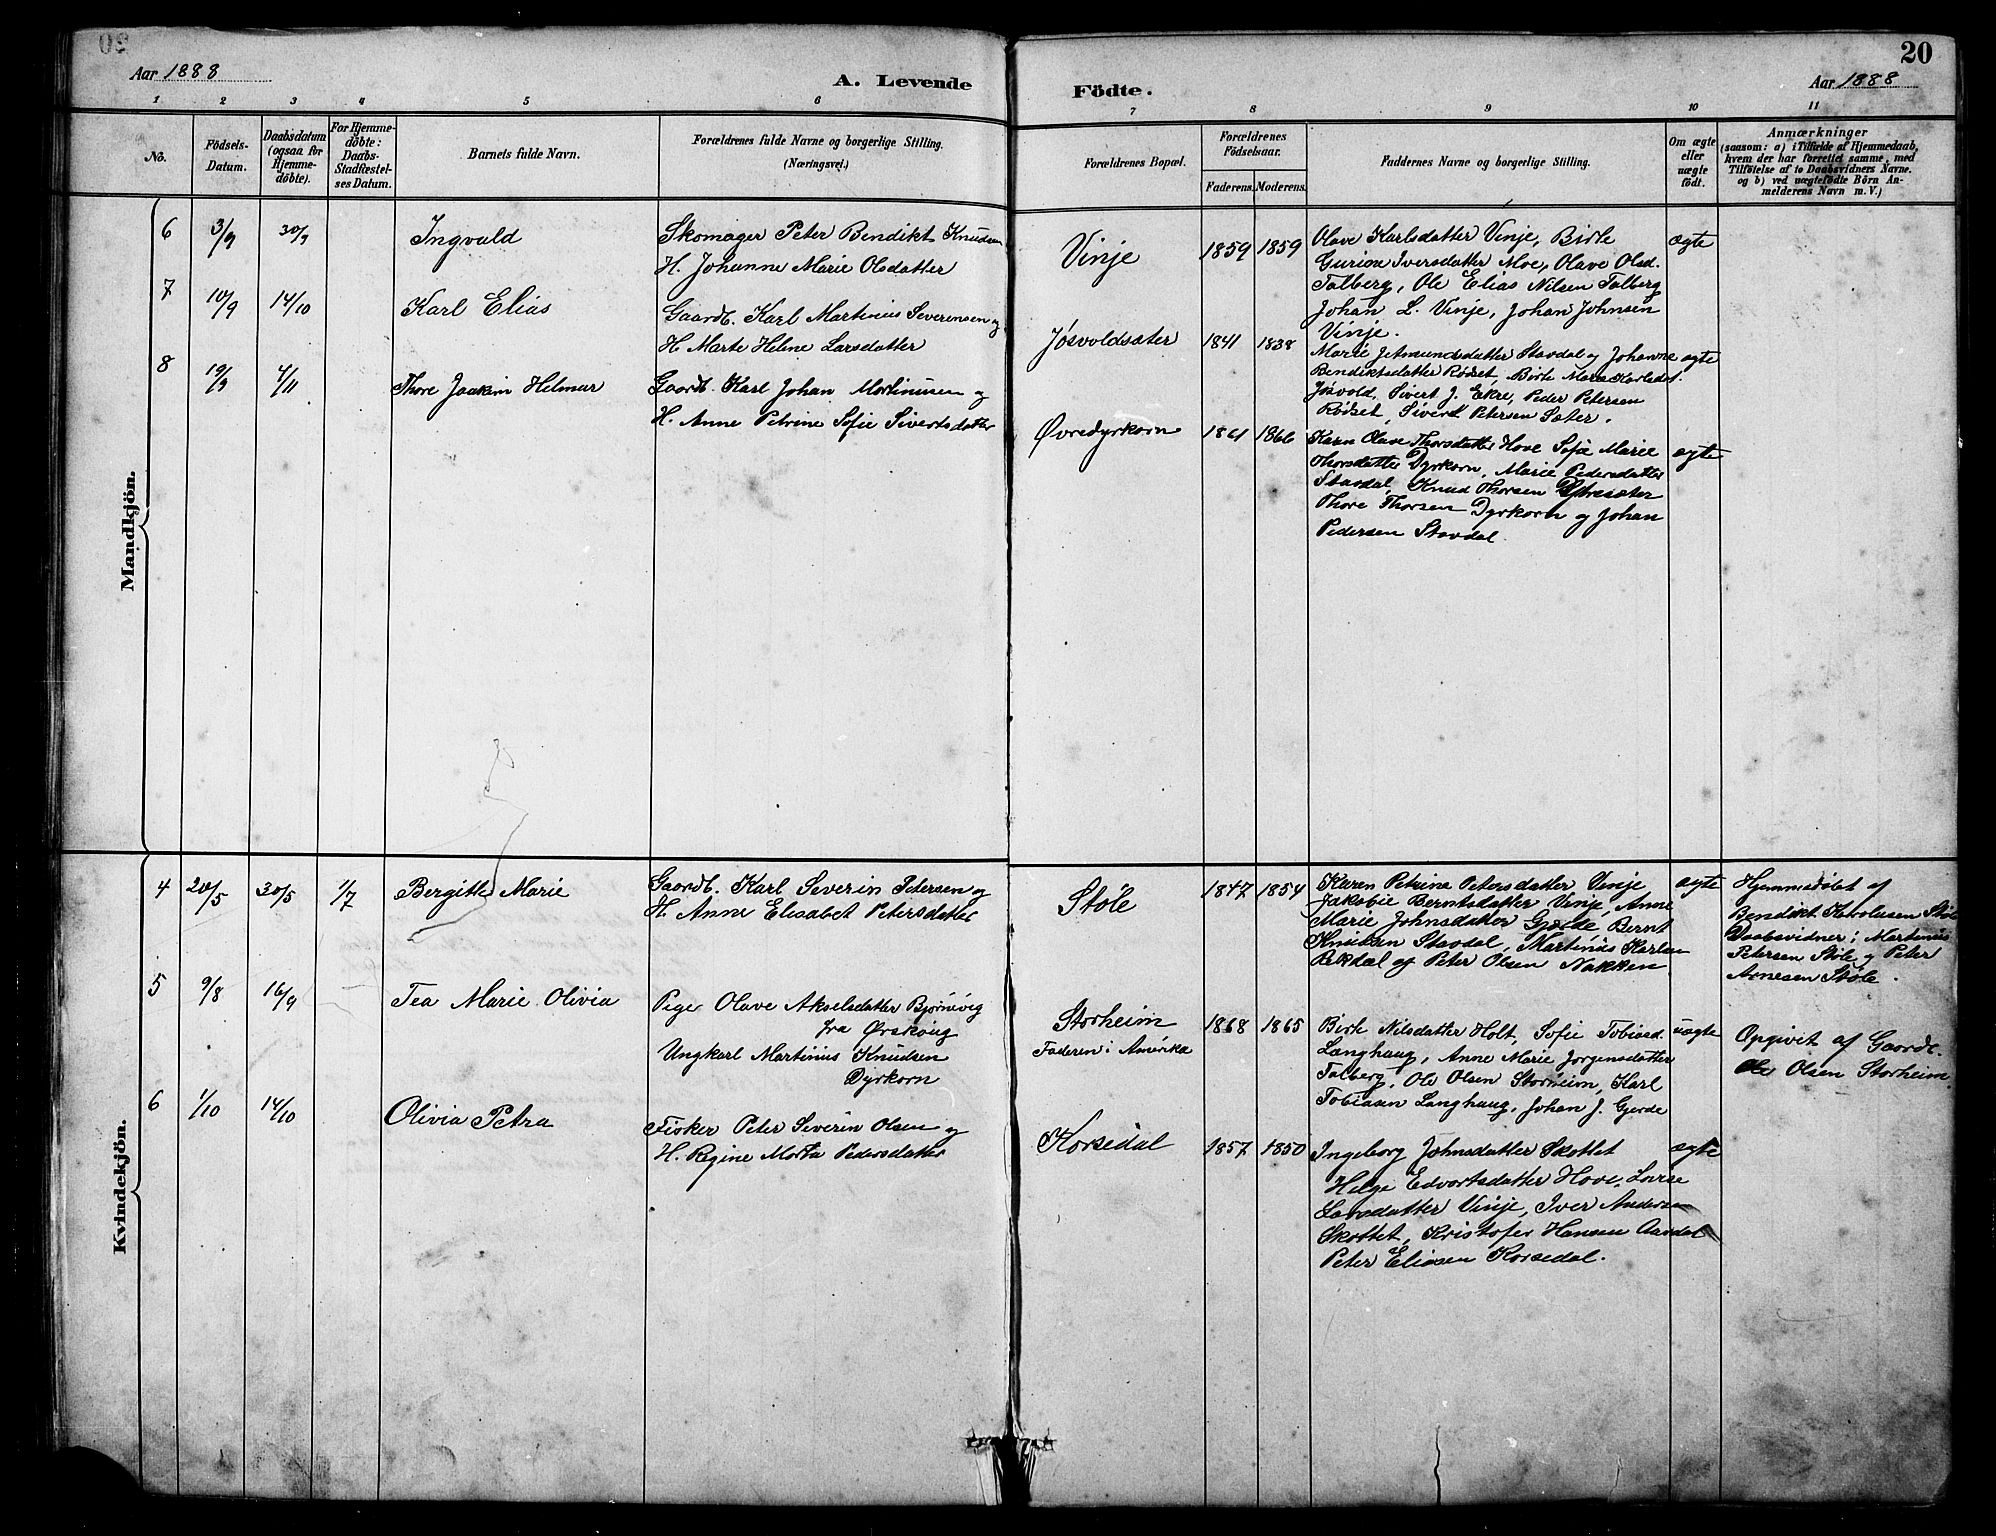 20
Aar 1888
A. Levende
Födte.
Aar 1888
1 2 3 4 5 6 7 8 9 10 11
No.
Födsels-
Datum.
Daabsdatum
(ogsaa for
Hjemme-
döbte).
For Hjemme-
döbte:
Daabs-
Stadfæstel-
ses Datum.
Barnets fulde Navn.
Forældrenes fulde Navne og borgerlige Stilling.
(Næringsvei.)
Forældrenes Bopæl.
Forældrenes
Födselsaar.
Faderens. Moderens.
Faddernes Navne og borgerlige Stilling.
Om ægte
eller
uægte
födt.
Anmærkninger
(saasom: a) i Tilfælde af Hjemmedaab,
hvem der har forrettet samme, med
Tilföielse af to Daabsvidners Navne.
og b) ved uægtefödte Börn An-
melderens Navn m. V.)
Mandkjön.
6 3/9 30/9 Ingvald
Skomager Peter Bendikt Knudsen
H. Johanne Marie Olsdatter
Vinje 1859 1859
Olave Karlsdatter Vinje, Birte
Gurine Iversdatter Moe, Olave Olsd.
Talberg, Ole Elias Nilsen Talberg
Johan L. Vinje, Johan Johnsen
Vinje.
ægte
7 10/9 14/10 Karl Elias
Gaardb. Karl Martinus Severinsen og
H. Marte Helene Larsdatter
Jøsvoldsæter 1841 1838
Marie Jetmundsdatter Stavdal og Johanne
Bendiktsdatter Rødset, Birte Marie Karlsdat.
Jøsvold, Sivert J. Ekre, Peder Petersen
Rødset, Sivert Petersen Sæter.
ægte
8 19/9 4/11 Thore Joakim Helmar
Gaardb. Karl Johan Martinusen og
H. Anne Petrine Sofie Sivertsdatter
Øvredyrkorn 1861 1866
Karn Olave Thorsdatter Hove Sofie Marie
Thorsdatter Dyrkorn, Marie Pedersdatter
Stavdal, Knud Thorsen Ytresæter
Thore Thorsen Dyrkorn og Johan
Pedersen Stavdal.
ægte
Kvindekjön.
4 20/5 30/5 1/7 Bergitte Marie
Gaardb. Karl Severin Petersen og
H. Anne Elisabet Petersdatter
Støle 1847 1854
Karen Petrine Petersdatter Vinje
Jakobie Berntsdatter Vinje, Anne
Marie Johnsdatter Gjerde, Bernt
Knudsen Stavdal, Martinus Karlsen
Rekdal og Peter Olsen Nakken
ægte
Hjemmedøbt af
Bendikt Karolusen Støle
Daabsvidner: Martinus
Petersen Støle og Peter
Arnesen Støle.
5 9/8 16/9 Tea Marie Olivia
Pige Olave Akselsdatter Bjørnevig
fra Ørskoug
Ungkarl Martinus Knudsen
Dyrkorn
Storheim
Faderen i Amerika
1868 1865
Birte Nilsdatter Holt, Sofie Tobiasd.
Langhaug, Anne Marie Jørgensdatter
Talberg, Ole Olsen Storheim, Karl
Tobiasen Langhaug, Johan J. Gjerde
uægte
Opgivet af Gaardb.
Ole Olsen Storheim.
6 1/10 14/10 Olivia Petra
Fisker Peter Severin Olsen og
H. Regine Marta Pedersdatter
Korsedal 1857 1850
Ingeborg Johnsdatter Skottet
Helge Edvartsdatter Hove, Lovise
Larsdatter Vinje, Iver Andersen
Skottet, Kristofer Hansen Aasdal
Peter Eliasen Korsedal.
ægte